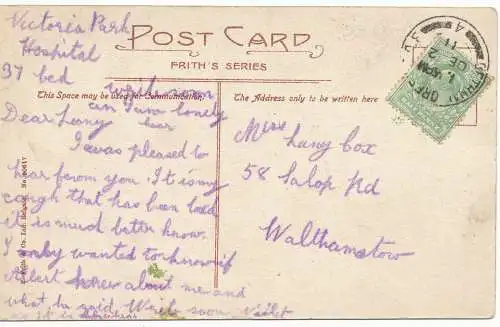 Victoria Park
Hospital
37 bed
POST CARD
FRITH'S SERIES
This Space may be used for Communication.
The Address only to be written here
write soon
an I am lonely
her
Dear
I was pleased to
hear from you. It is my
cough that has been bad
it is much better know.
I only wanted to know if
Albert knew about me and
what he said. Write soon Violet
Miss
box
58 Salop Rd
Walthamstow